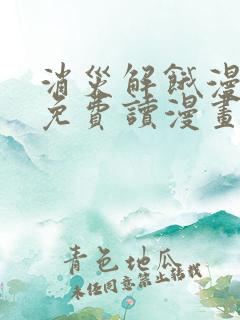 消災解餓漫
免費讀漫畫
青色地瓜
未经同意禁止转载